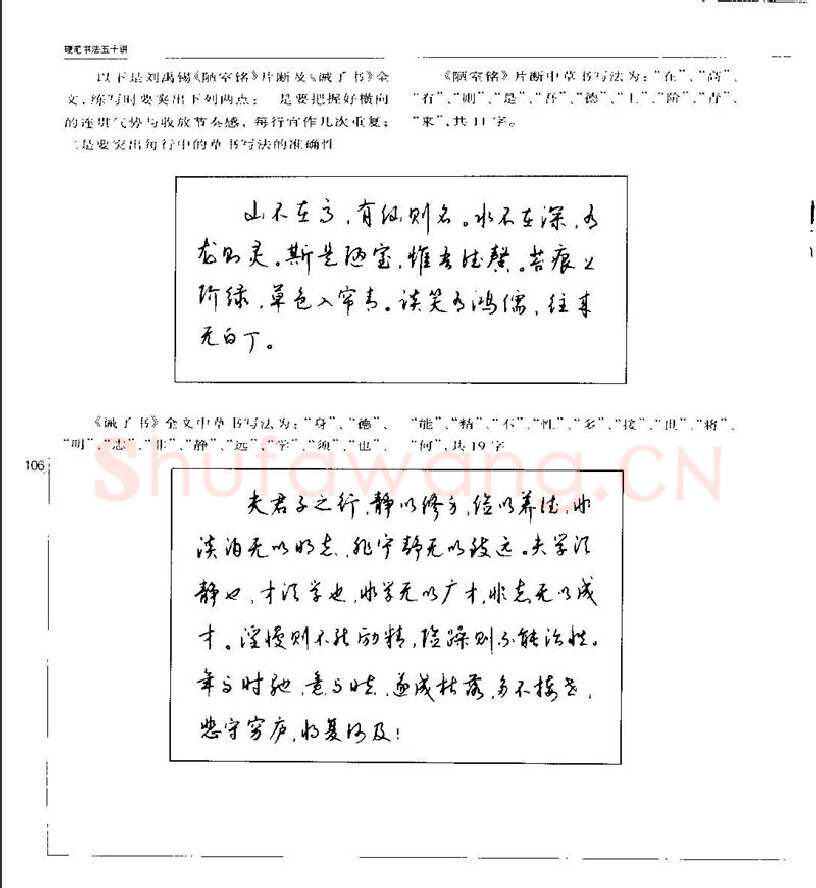 硬笔书法五十讲
以下是刘禹锡《陋室铭》片断及《诫子书》全
文,练写时要突出下列两点:一是要把握好横向
的连贯气势与收放节奏感,每行宜作几次重复;
二是要突出每行中的草书写法的准确性
《陋室铭》片断中草书写法为:“在”、“高”、
“有”、“则”、“是”、“吾”、“德”、“上”、“阶”、“青”、
“来”,共11字。
山不在高,有仙则名。水不在深,有
龙则灵。斯是陋室,惟吾德馨。苔痕上
阶绿,草色入帘青。谈笑有鸿儒,往来
无白丁。
《诫子书》全文中草书写法为:“身”、“德”、
“明”、“志”、“非”、“静”、“远”、“学”、“须”、“也”、
“能”、“精”、“不”、“性”、“多”、“接”、“世”、“将”、
“何”,共19字
106
Shufawang.CN
夫君子之行,静以修身,俭以养德,非
淡泊无以明志,非宁静无以致远。夫学须
静也,才须学也,非学无以广才,非志无以成
才。淫慢则不能励精,险躁则不能治性。
年与时驰,意与日去,遂成枯落,多不接世,
悲守穷庐,将复何及!